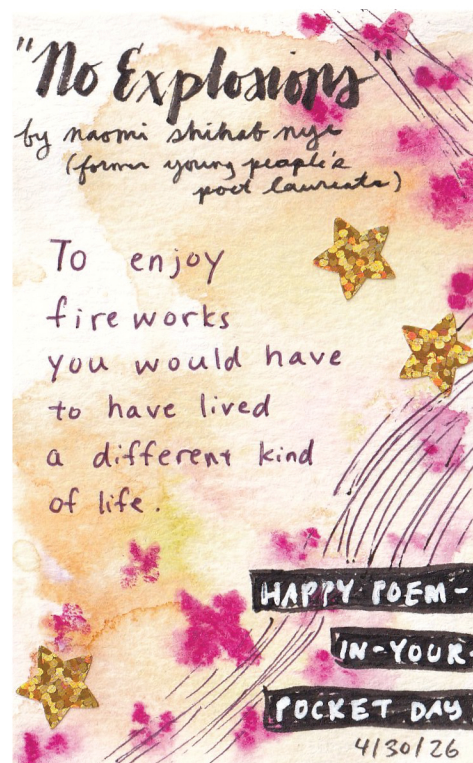 "No Explosions"
by naomi shihab nye
(former young people's
poet laureate)
To enjoy
fireworks
you would have
to have lived
a different kind
of life.
HAPPY POEM-
IN-YOUR-
POCKET DAY
4/30/26